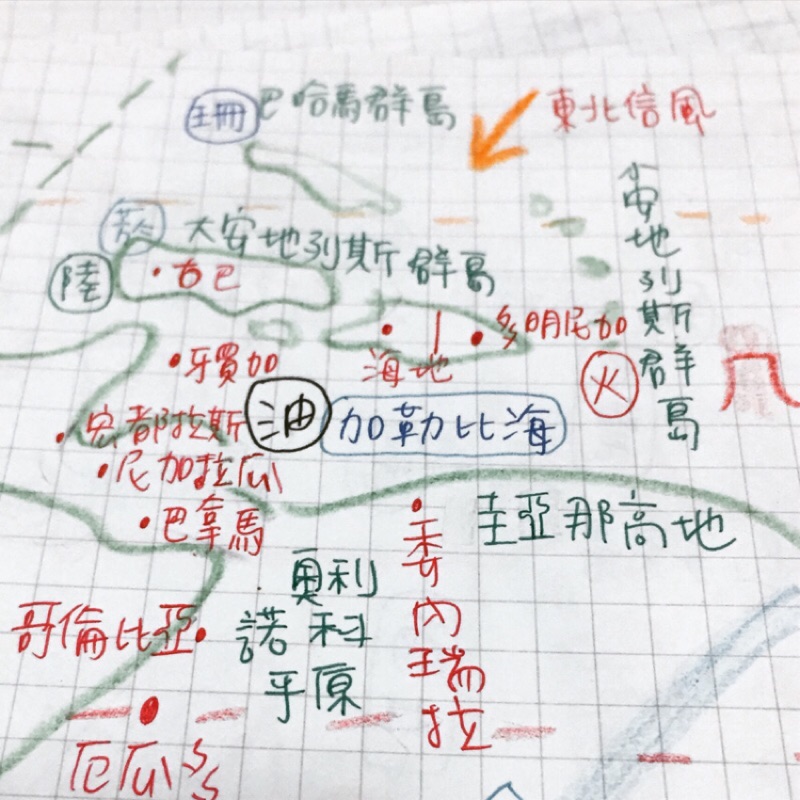 珊 巴哈馬群島
東北信風
小安地列斯群島
大安地列斯群島
陸
古巴
多明尼加
海地
牙買加
火
宏都拉斯
油
加勒比海
尼加拉瓜
巴拿馬
圭亞那高地
委內瑞拉
奧利
諾科
平原
哥倫比亞
厄瓜多